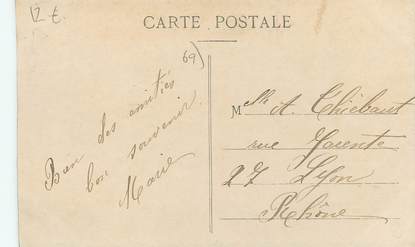 12 €
CARTE POSTALE
69)
Bien des amitiés
bon souvenir
Marie
Melle A. Thiebaut
rue
27 Lyon
Rhône